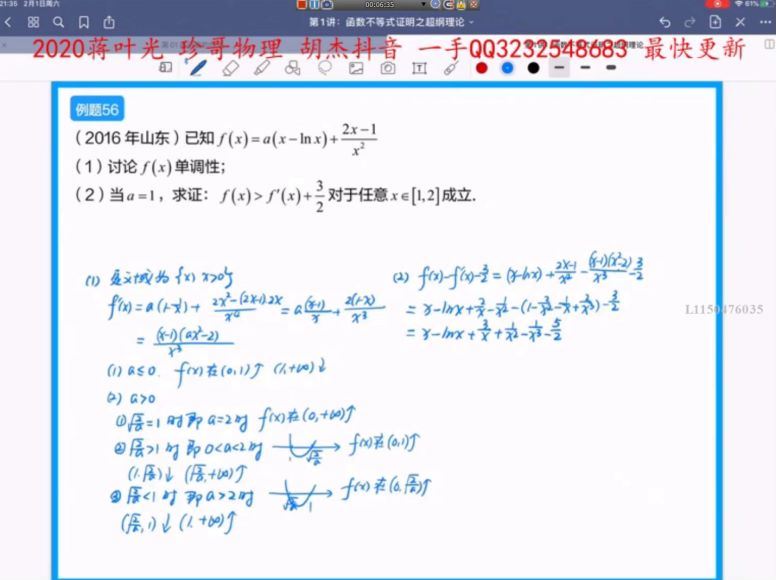 21:35 2月1日周六
00:06:35
61%
第1讲：函数不等式证明之超纲理论
2020蒋叶光 珍哥物理 胡杰抖音 一手QQ3232548683 最快更新
例题56
（2016年山东）已知 f(x)=a(x−ln x)+\frac{2x−1}{x²}
（1）讨论 f(x) 单调性；
（2）当 a=1，求证： f(x)>f′(x)+\frac{3}{2} 对于任意 x∈[1,2] 成立.
(1) 定义域为 {x| x>0}
f'(x)=a(1-\frac{1}{x})+\frac{2x²-(2x-1)·2x}{x⁴}=a\frac{(x-1)}{x}+\frac{2(1-x)}{x³}
=\frac{(x-1)(ax²-2)}{x³}
(1) a≤0. f(x)在(0,1)↑ (1,+∞)↓
(2) a>0
①\sqrt{\frac{2}{a}}=1 时 即 a=2时 f(x)在(0,+∞)↑
②\sqrt{\frac{2}{a}}>1时 即 0<a<2时 1 \sqrt{\frac{2}{a}} f(x)在(0,1)↑
(1,\sqrt{\frac{2}{a}})↓ (\sqrt{\frac{2}{a}},+∞)↑
③\sqrt{\frac{2}{a}}<1时 即 a>2时 \sqrt{\frac{2}{a}} 1 f(x)在(0,\sqrt{\frac{2}{a}})↑
(\sqrt{\frac{2}{a}},1)↓ (1,+∞)↑
(2) f(x)-f'(x)-\frac{3}{2}=(x-lnx)+\frac{2x-1}{x²}-\frac{(x-1)(x²-2)}{x³}-\frac{3}{2}
=x-lnx+\frac{2}{x}-\frac{1}{x²}-(1-\frac{2}{x²}-\frac{1}{x}+\frac{2}{x³})-\frac{3}{2}
=x-lnx+\frac{3}{x}+\frac{1}{x²}-\frac{1}{x³}-\frac{5}{2}
L1150476035